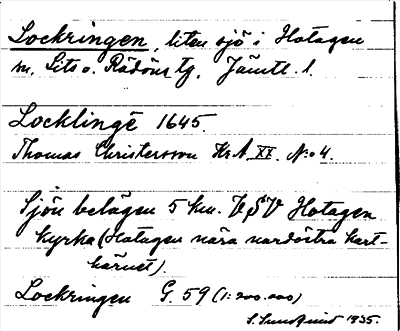 Lockringen, liten sjö i Hotagen
m. Lits o. Rödöns tg. Jämtl. l.
Locklinge 1645.
Thomas Christersson Kr.A. XX. N:o 4.
Sjön belägen 5 km. VSV Hotagen
kyrka (Hotagen nära nordöstra kart-
hörnet).
Lockringen G. 59 (1:200.000)
1935.